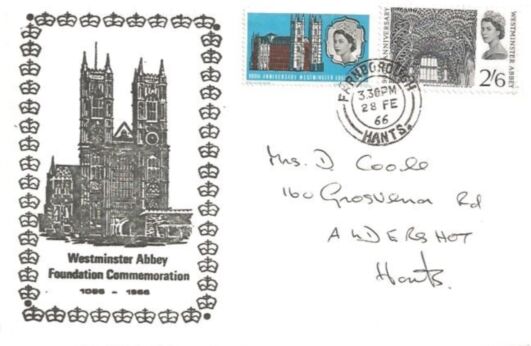 900TH ANNIVERSARY WESTMINSTER ABBEY
ANNIVERSARY
WESTMINSTER ABBEY
2/6
FARNBOROUGH
3.30PM
28 FE
66
HANTS.
Mrs. D. Coole
160 Grosvenor Rd
ALDERSHOT
Hants.
Westminster Abbey
Foundation Commemoration
1065 - 1966